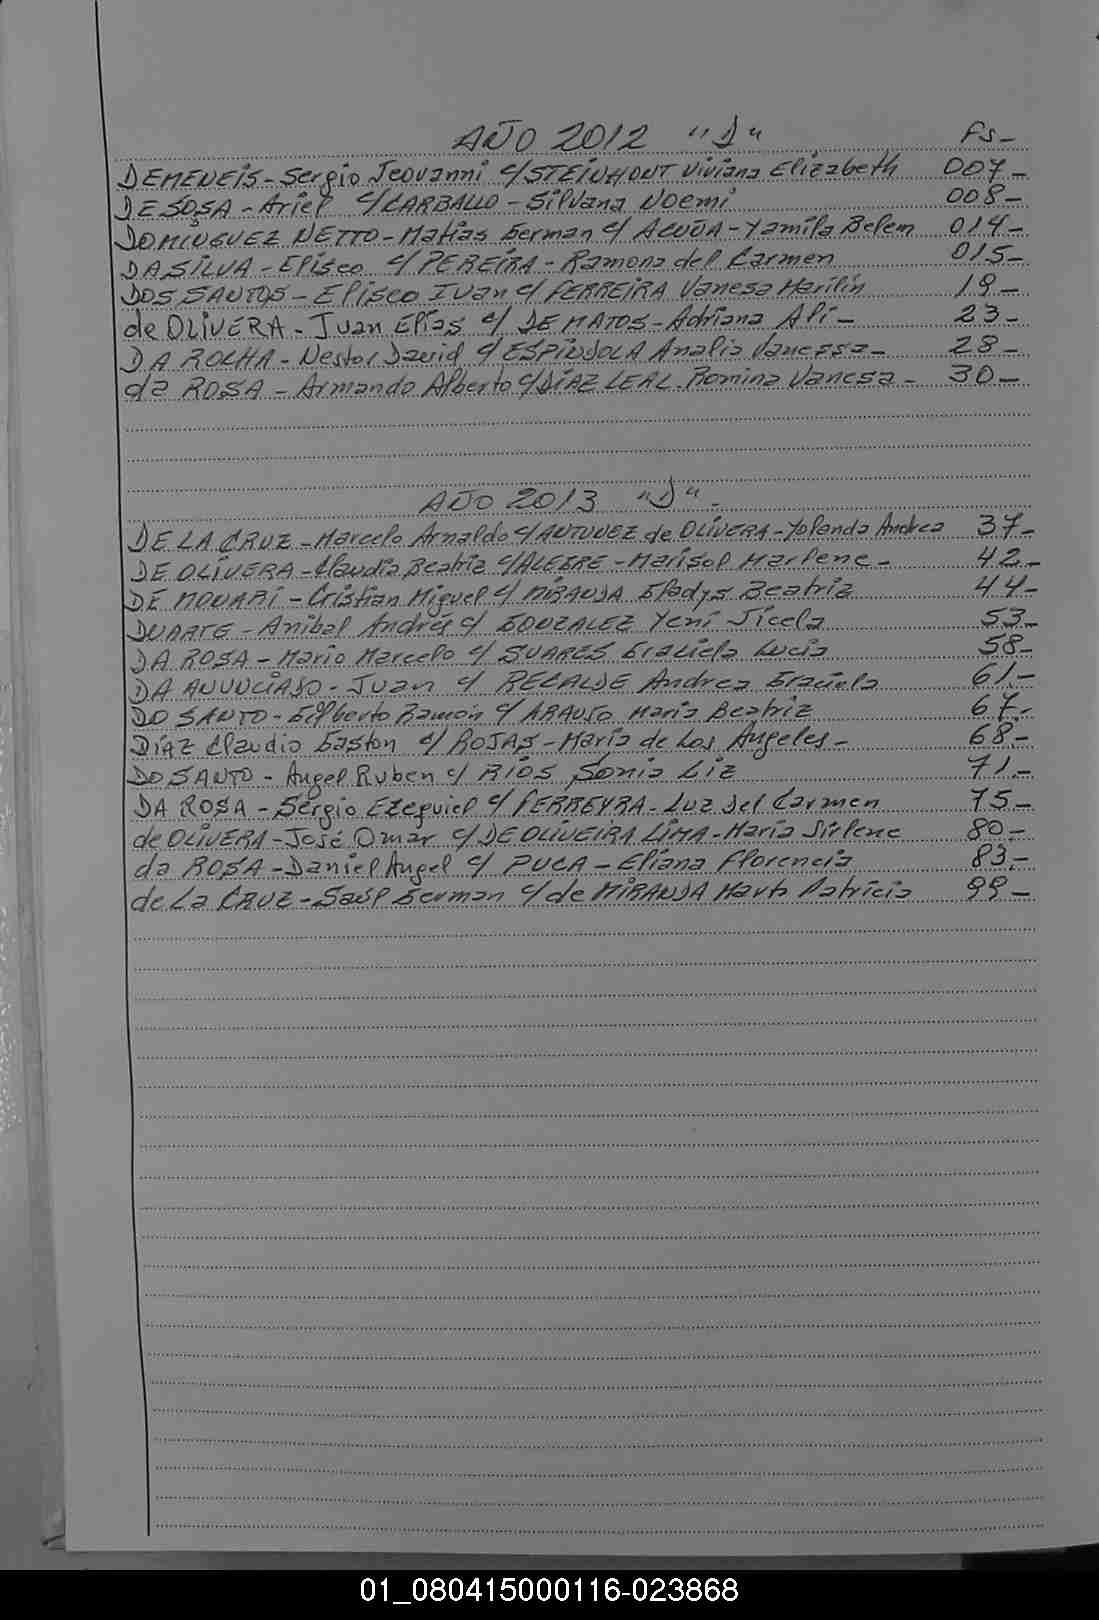 AÑO 2012 "D" Fs-
DEMENEIS - Sergio Jeovanni c/ STEINHONT Viviana Elizabeth 007-
DE SOSA - Ariel c/ CARBALLO - Silvana Noemi 008-
DOMÍNGUEZ NETTO - Matias German c/ ACUÑA - Yamila Belem 014-
DA SILVA - Eliseo c/ PEREIRA - Ramona del Carmen 015-
DOS SANTOS - Eliseo Ivan c/ FERREIRA Vanesa Marilin 19-
de OLIVERA - Juan Elías c/ DE MATOS - Adriana Ali - 23-
DA ROCHA - Nestor David c/ ESPÍNDOLA Analia Vanessa - 28-
da ROSA - Armando Alberto c/ DÍAZ LEAL - Romina Vanesa - 30-
AÑO 2013 "D" -
DE LA CRUZ - Marcelo Arnaldo c/ ANTUNEZ de OLIVERA - Yolanda Andrea 37-
DE OLIVERA - Claudia Beatriz c/ ALEGRE - Marisol Marlene - 42-
DE MOURARI - Cristian Miguel c/ MIRANDA Gladys Beatriz 44-
DUARTE - Anibal Andrés c/ GONZALEZ Yeni Jicela 53-
DA ROSA - Mario Marcelo c/ SUARES Graciela Lucia 58-
DA ANUNCIASO - Juan c/ RECALDE Andrea Graciela 61-
DO SANTO - Gilberto Ramón c/ ARAUJO Maria Beatriz 67-
DÍAZ Claudio Gaston c/ ROJAS - María de Los Angeles - 68-
DO SANTO - Angel Ruben c/ RÍOS Sonia Liz 71-
DA ROSA - Sergio Ezequiel c/ FERREYRA - Luz del Carmen 75-
de OLIVERA - José Omar c/ DE OLIVEIRA LIMA - María Sirlene 80-
da ROSA - Daniel Angel c/ PUCA - Eliana Florencia 83-
de La CRUZ - Saúl German c/ de MIRANDA Marta Patricia 99-
01_080415000116-023868